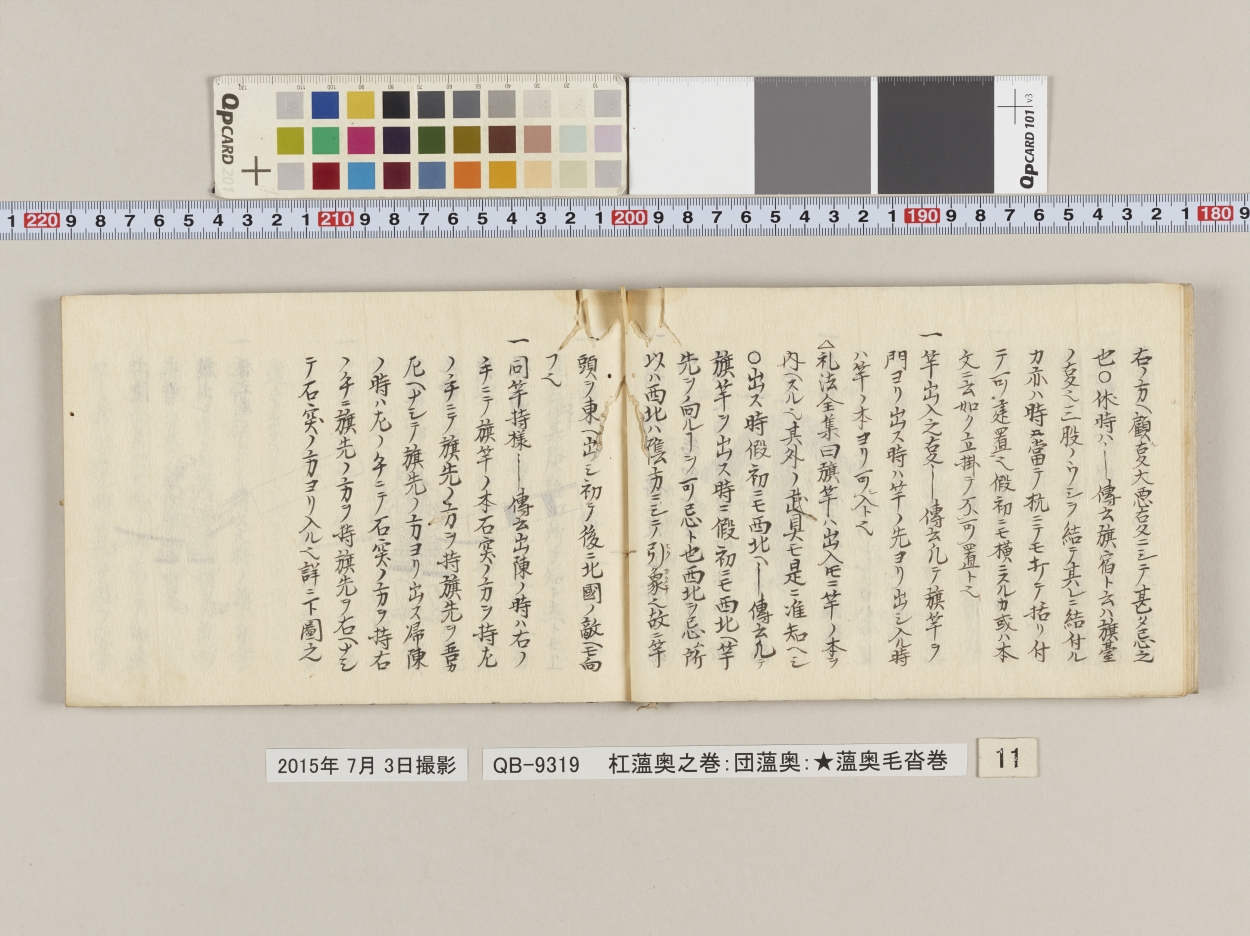 QPCARD 201
QPCARD 101 v3
1 220 9 8 7 6 5 4 3 2 1 210 9 8 7 6 5 4 3 2 1 200 9 8 7 6 5 4 3 2 1 190 9 8 7 6 5 4 3 2 1 180 9
右ノ方ヘ顧支大悪支ニシテ甚タ忌之
也〇休時ハ一傳云旗宿ト云ハ旗臺
ノ支ヘ三股ノウシヲ結テ其レニ結付ル
カ亦ハ時當テ杭ニテモ打テ括リ付
テ可建置也假初ニモ横ニスルカ或ハ本
文ニ云如ク立掛テ不可置トヘ
一竿出入之支一傳云凡テ旗竿ヲ
門ヨリ出ス時ハ竿ノ先ヨリ出シ入ル時
ハ竿ノ本ヨリ可入トヘ
△礼法全集曰旗竿ハ出入ニ竿ノ本ヲ
内ヘスル也其外ノ武具モ是ニ准知ヘシ
〇出ス時假初ニモ西北ヘ一傳云凡テ
旗竿ヲ出ス時ニ假初ニモ西北ヘ竿
先ヲ向ルヿヲ可忌ト也西北ヲ忌所
以ハ西北ハ陰方ニシテ引象也故ニ竿
頭ヲ東ヘ出シ初テ後ニ北國ノ敵ヘモ向
フヘ
一同竿持樣一傳云出陳ノ時ハ右ノ
手ニテ旗竿ノ本石突ノ方ヲ持左
ノ手ニテ旗先ノ方ヲ持旗先ヲ吾カ
左ヘナシテ旗先ノ方ヨリ出ス帰陳
ノ時ハ左ノ手ニテ石突ノ方ヲ持右
ノ手ニ旗先ノ方ヲ持旗先ヲ右ヘナシ
テ石突ノ方ヨリ入ル也詳ニ下圖之
2015年 7月 3日撮影
QB-9319 杠薀奥之巻:団薀奥:★薀奥毛沓巻
11